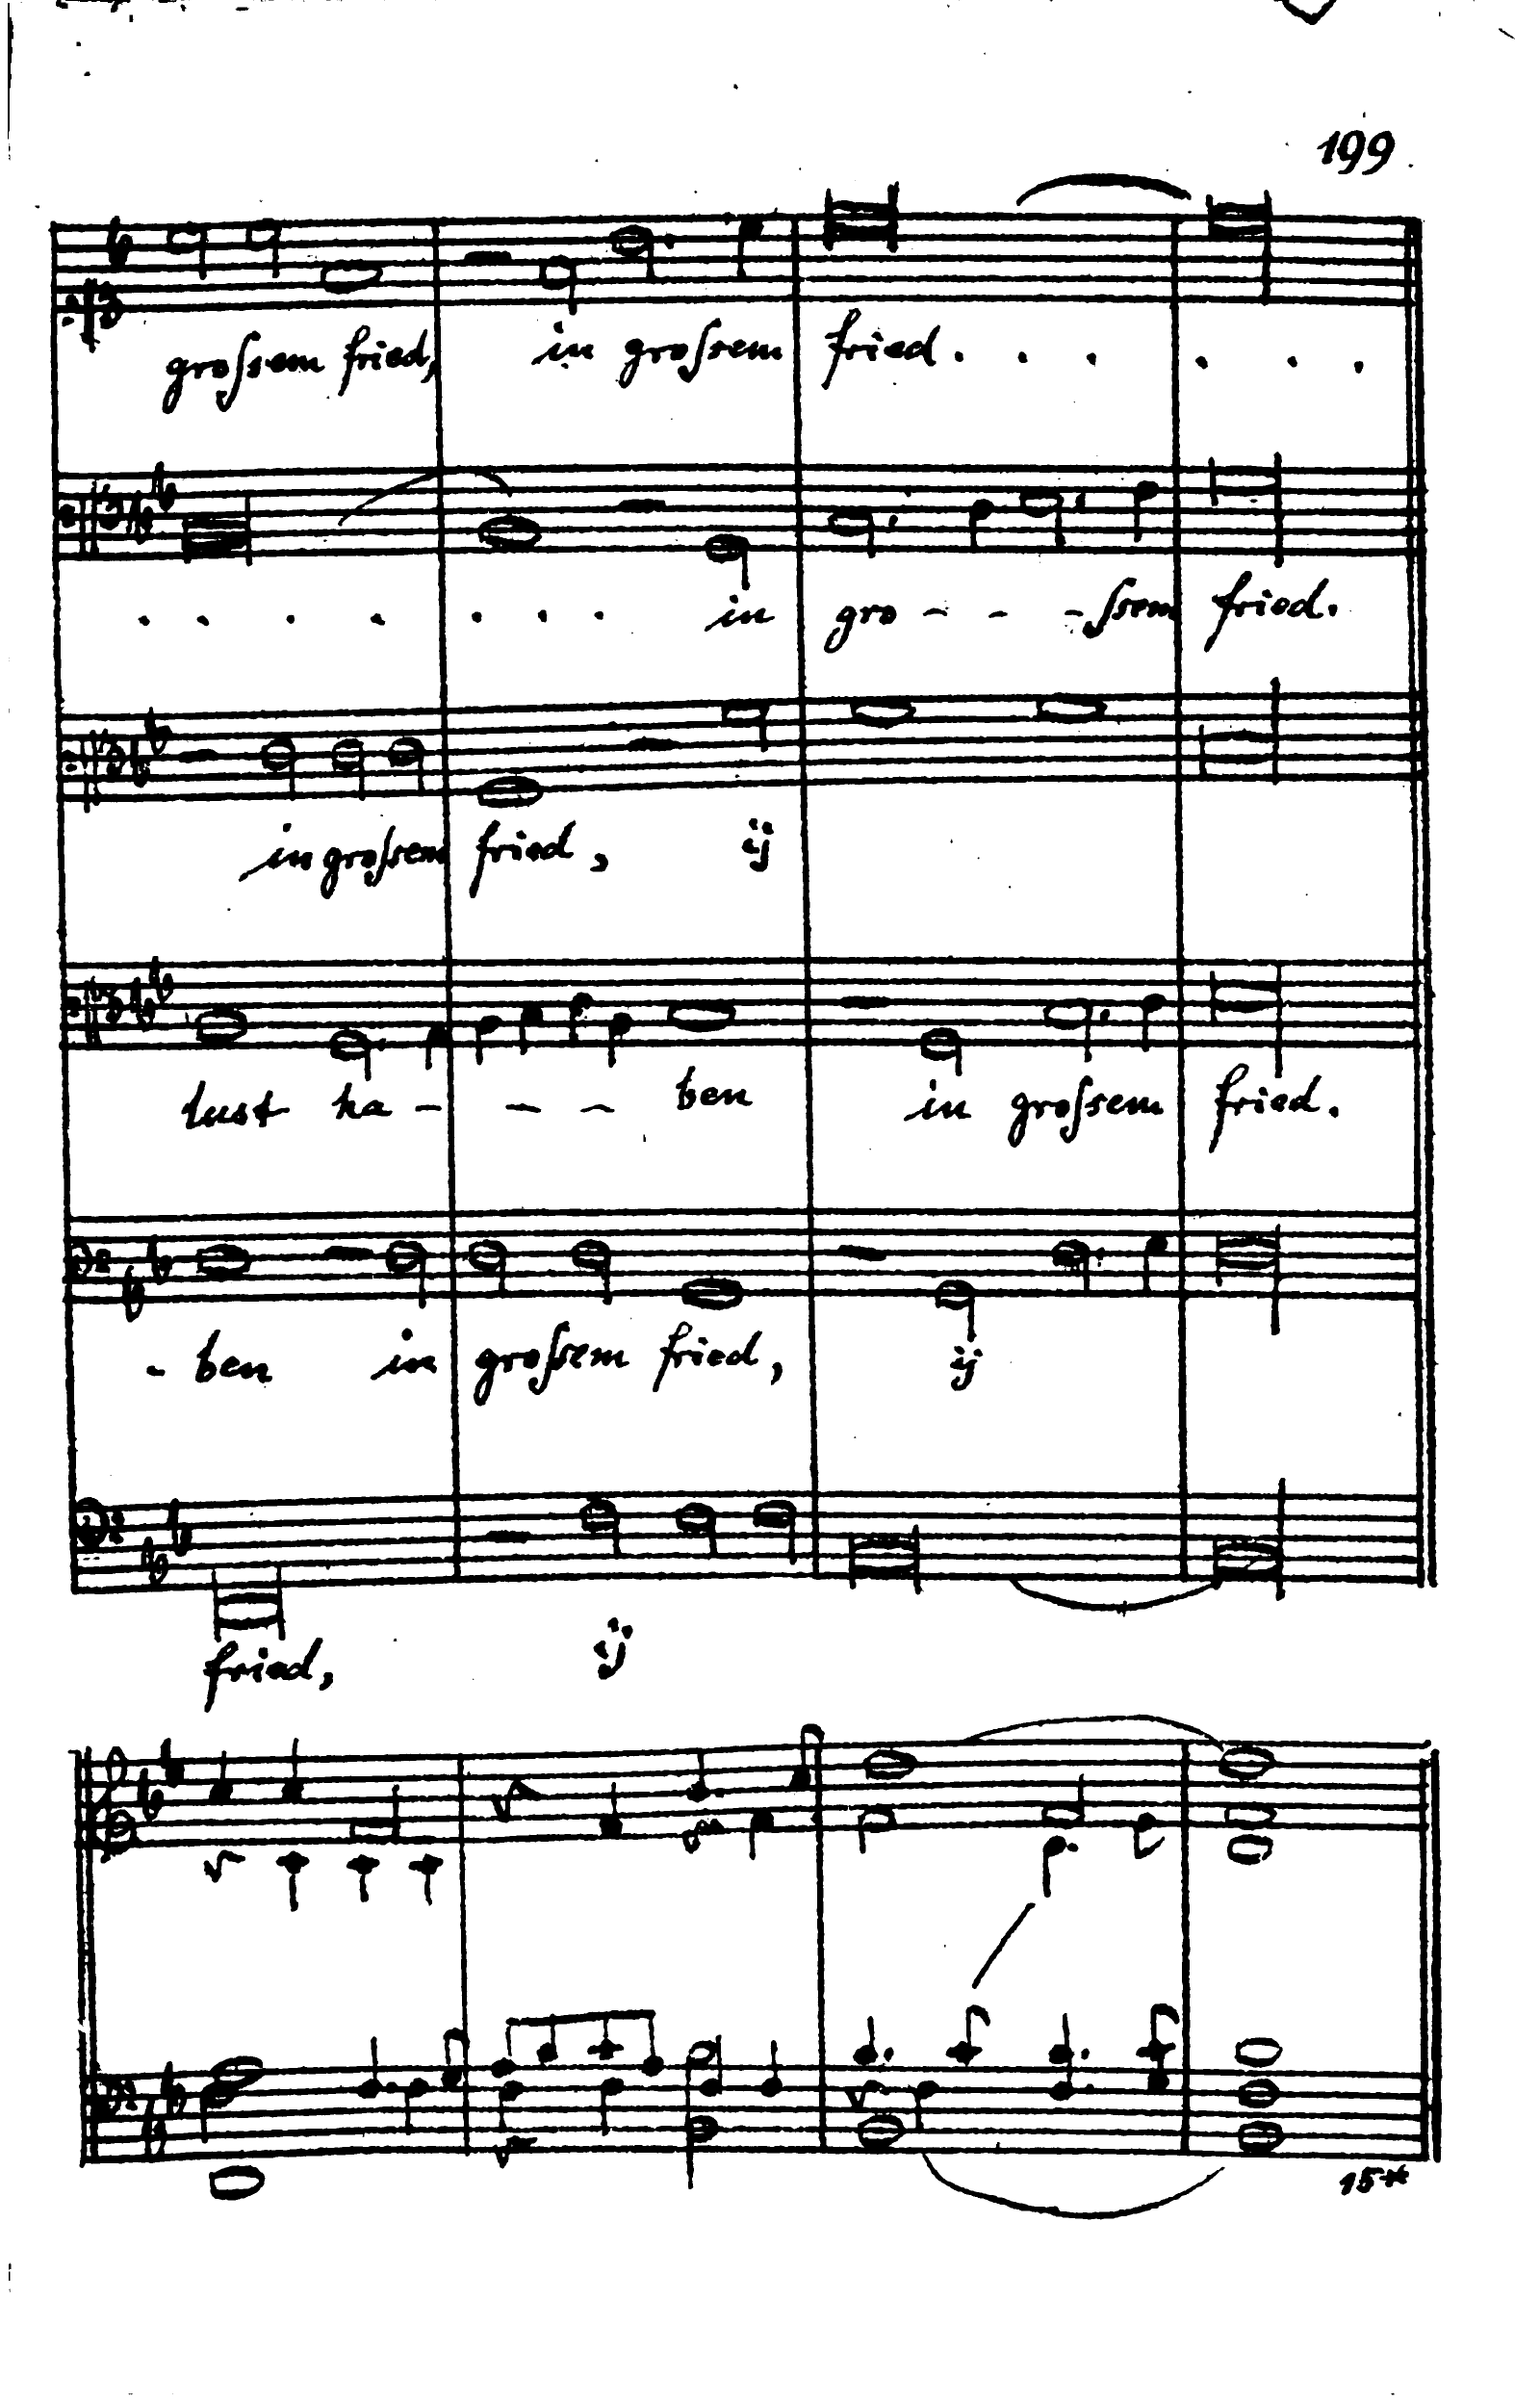 199
grossem fried, in grossem fried. . . . . .
. . . . . . . in gro - - - ssem fried.
in grossem fried, ij
lust ha - - - ben in grossem fried.
- ben in grossem fried, ij
fried, ij
15*